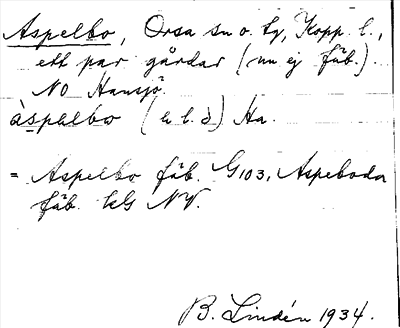 Aspelbo, Orsa sn o. tg, Kopp. l.,
ett par gårdar (nu ej fäb.).
NO Hansjö.
àspəlbo (b. l. d) Ha.
= Aspelbo fäb. G103, Aspeboda
fäb. kG NV.
B. Lindén 1934.